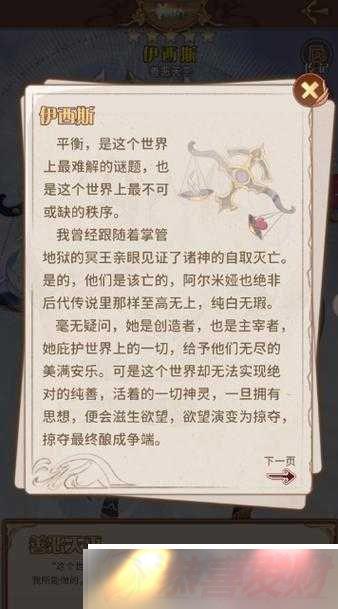 伊西斯
伊西斯
平衡，是这个世界
上最难解的谜题，也
是这个世界上最不可
或缺的秩序。
我曾经跟随着掌管
地狱的冥王亲眼见证了诸神的自取灭亡。
是的，他们是该亡的，阿尔米娅也绝非
后代传说里那样至高无上，纯白无瑕。
毫无疑问，她是创造者，也是主宰者，
她庇护世界上的一切，给予他们无尽的
美满安乐。可是这个世界却无法实现绝
对的纯善，活着的一切神灵，一旦拥有
思想，便会滋生欲望，欲望演变为掠夺，
掠夺最终酿成争端。
下一页
善恶天
“这个世
我所能做的，
恭喜发财